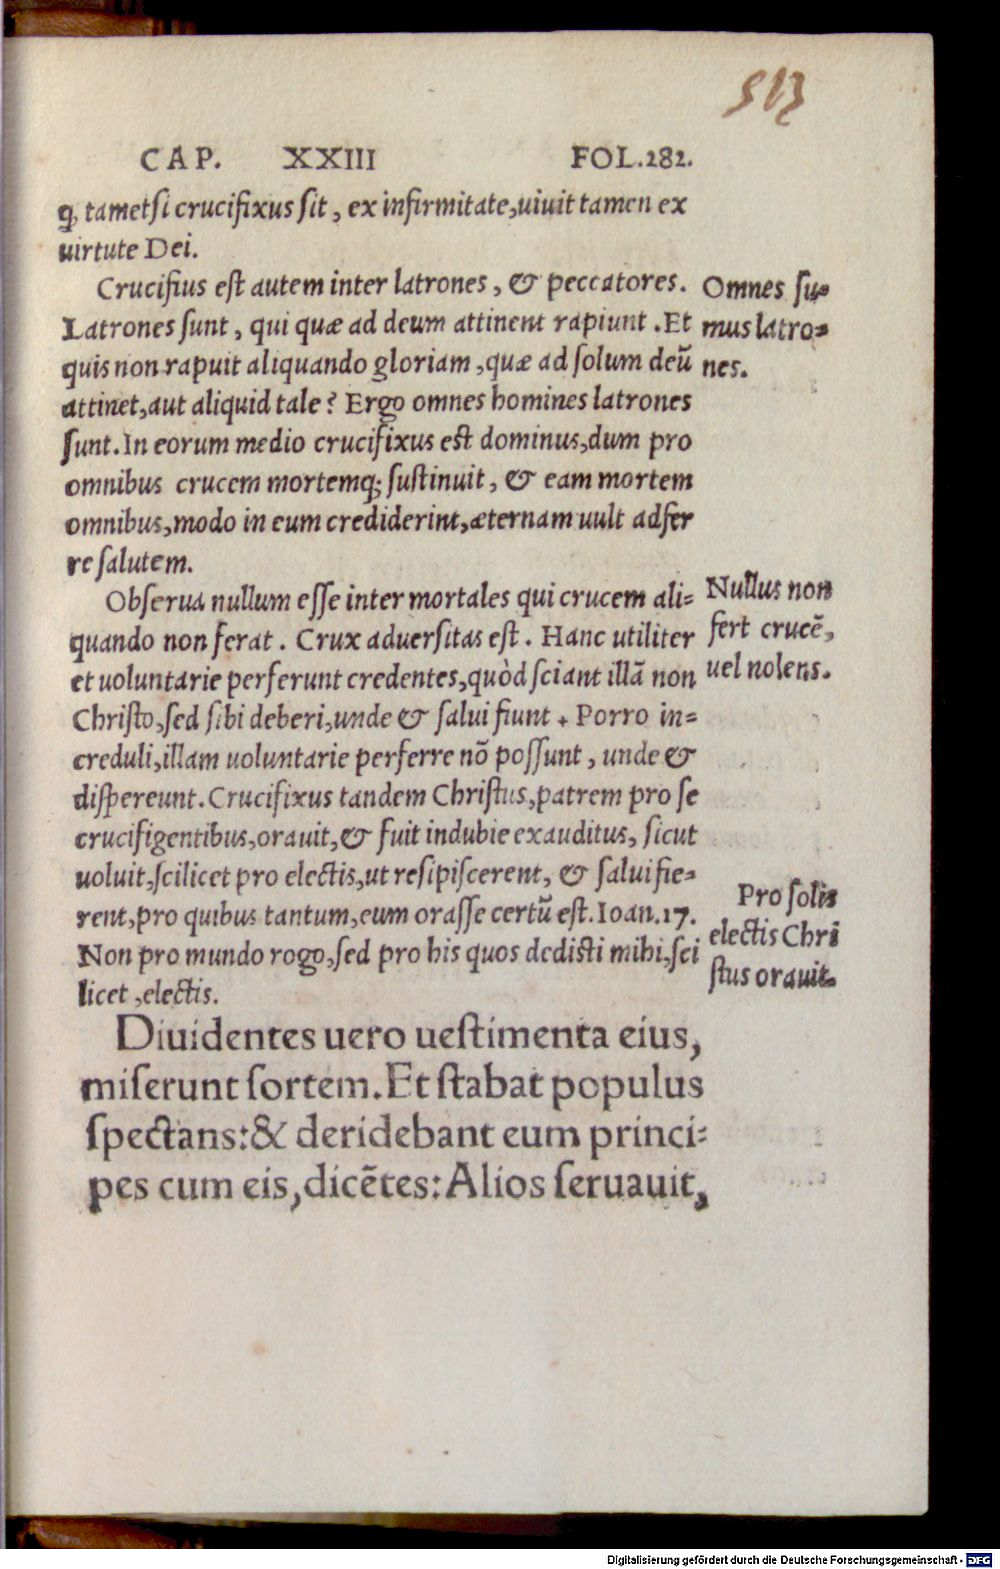 513
CAP. XXIII FOL.282.
ꝙ tametsi crucifixus sit, ex infirmitate, uiuit tamen ex
uirtute Dei.
Crucifius est autem inter latrones, & peccatores.
Latrones sunt, qui quæ ad deum attinent rapiunt. Et
quis non rapuit aliquando gloriam, quæ ad solum deũ
attinet, aut aliquid tale? Ergo omnes homines latrones
sunt. In eorum medio crucifixus est dominus, dum pro
omnibus crucem mortemq; sustinuit, & eam mortem
omnibus, modo in eum crediderint, æternam uult adfer
re salutem.
Omnes su-
mus latro-
nes.
Obserua nullum esse inter mortales qui crucem ali-
quando non ferat. Crux aduersitas est. Hanc utiliter
et uoluntarie perferunt credentes, quòd sciant illã non
Christo, sed sibi deberi, unde & salui fiunt. Porro in-
creduli, illam uoluntarie perferre nõ possunt, unde &
dispereunt. Crucifixus tandem Christus, patrem pro se
crucifigentibus, orauit, & fuit indubie exauditus, sicut
uoluit, scilicet pro electis, ut resipiscerent, & salui fie-
rent, pro quibus tantum, eum orasse certũ est. Ioan. 17.
Non pro mundo rogo, sed pro his quos dedisti mihi, sci
licet, electis.
Nullus non
fert crucẽ,
uel nolens.
Pro solis
electis Chri
stus orauit.
Diuidentes uero uestimenta eius,
miserunt sortem. Et stabat populus
spectans: & deridebant eum princi-
pes cum eis, dicẽtes: Alios seruauit,
Digitalisierung gefördert durch die Deutsche Forschungsgemeinschaft - DFG